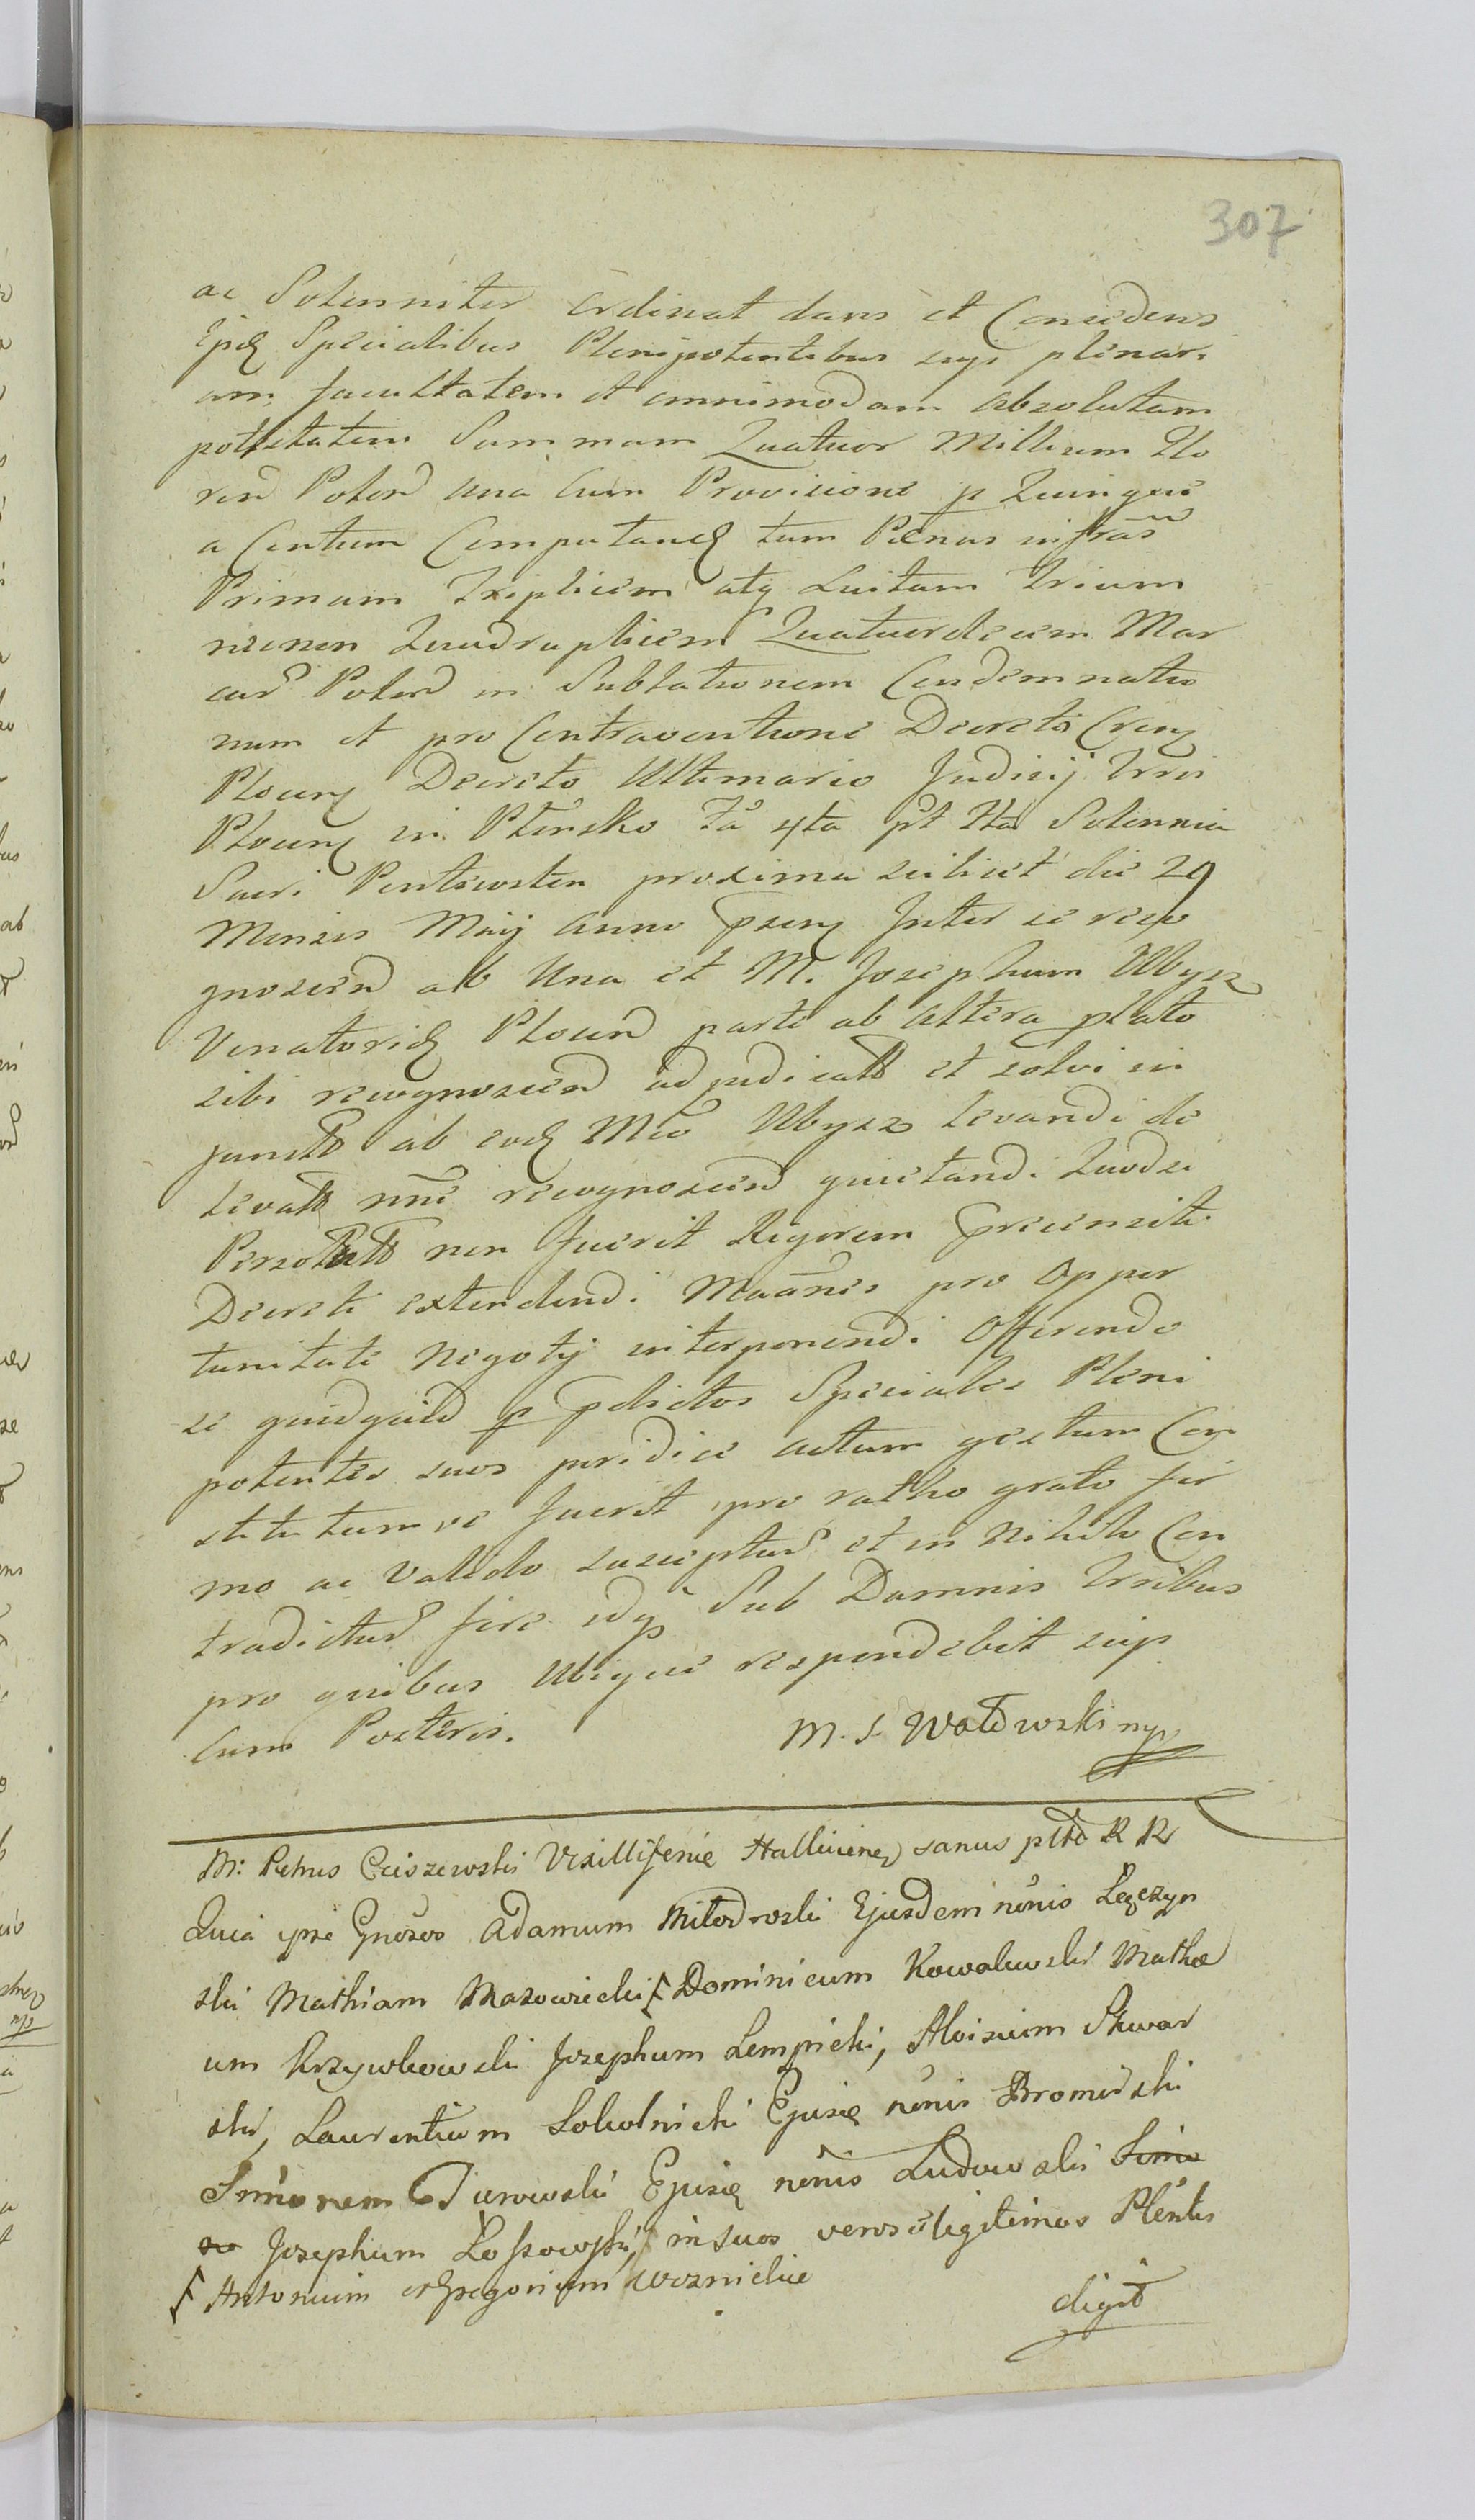 307
ac Solenniter ordinat dans et Concedens
Ejsd Specialibus Plenipotentibus suis plenari
am facultatem et omnimodam absolutam
potestatem Summam Quatuor Millium Flo
ren Polon una cum Provisione p Quinque
a Centum Computand tum Paenas infras
Primam Triplicem atq Luitam Trium
necnon Quadruplicem Quatuordecim Mar
car Polon in Sublationem Condemnatio
num et pro Contraventione Decretis
Plocen Decreto Ultimario Judicij Trri
Plocen in Płońsko fa 4ta pt fta Solennia
Sacri Pentecosten proxima scilicet die 29
Mensis Maij anno psen Inter se reco
gnoscen ab Una et M. Josephum Ubysz
Venatorid Plocen parte ab altera plato
sibi recognoscen adjudicatt et solvi in
junctt ab eod Mco Ubysz levandi de
levatt mne recognoscen quietandi Quodsi
Persolutt non fuerit Rigorem precensiti
Decreti extendendi Maanes pro Oppor
tunitate Negotij interponendi Offerendo
se quidquid p pdictos Speciales Pleni
potentes suos juridice actum gestum Con
stitutumve fuerit pro ratho grato fir
mo ac Valido suscepturm et in Nihilo Con
tradicturm fore idq Sub Damnis Trribus
pro quibus Ubique respondebit suis
cum Posteris.
M. S. Watowski mp
M: Petrus Cciszewski Vexilliferide Halliciens sanus ptte R R
Quia ipse Gnosos Adamum Miłodroski Ejusdem nonis Łęczyn
ski Mathiam Mazowiecki ⁅ Dominicum Kowalewski Mathae
um Krzywkowski Josephum Lempicki, Aloisium Skwar
ski, Laurentium Sokolnicki Ejusd nonis Bromirski
Simonem Giurowski Ejusd nonis Ludowski Simo
ne Josephum Lossowski, in suos veros et legitimos Plentes
⁅ Antonium et Gregorium Woznickie
digit